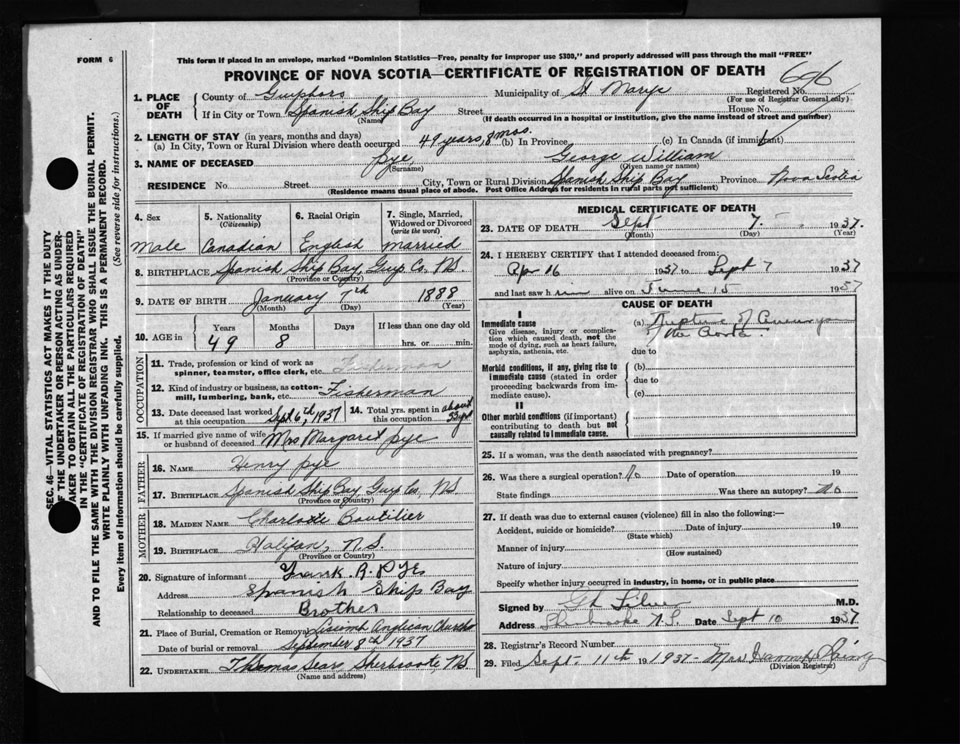 FORM 6
This form if placed in an envelope, marked "Dominion Statistics—Free, penalty for improper use $300," and properly addressed will pass through the mail "FREE"
PROVINCE OF NOVA SCOTIA—CERTIFICATE OF REGISTRATION OF DEATH
696
1. PLACE OF DEATH
County of
Municipality of St Marys
Registered No.
(For use of Registrar General only)
If in City or Town Spanish Ship Bay Street House No.
(Name) (If death occurred in a hospital or institution, give the name instead of street and number)
2. LENGTH OF STAY (in years, months and days)
(a) In City, Town or Rural Division where death occurred 49 years, 8 mos. (b) In Province (c) In Canada (if immigrant)
3. NAME OF DECEASED Pye George William
(Surname) (Given name or names)
RESIDENCE No. Street City, Town or Rural Division Spanish Ship Bay Province Nova Scotia
(Residence means usual place of abode. Post Office Address for residents in rural parts not sufficient)
4. Sex
Male
5. Nationality (Citizenship)
Canadian
6. Racial Origin
English
7. Single, Married, Widowed or Divorced (write the word)
Married
8. BIRTHPLACE Spanish Ship Bay, Guy. Co. N.S.
(Province or Country)
9. DATE OF BIRTH January 7th 1888
(Month) (Day) (Year)
10. AGE in
Years Months Days If less than one day old
49 8 hrs. or min.
OCCUPATION
11. Trade, profession or kind of work as spinner, teamster, office clerk, etc. Fisherman
12. Kind of industry or business, as cotton-mill, lumbering, bank, etc. Fisherman
13. Date deceased last worked at this occupation Sept 6th, 1937
14. Total yrs. spent in this occupation about
15. If married give name of wife or husband of deceased Mrs Margaret Pye
FATHER
16. NAME Henry Pye
17. BIRTHPLACE Spanish Ship Bay Guy Co, N.S.
(Province or Country)
MOTHER
18. MAIDEN NAME Charlotte Boutilier
19. BIRTHPLACE Halifax, N.S.
(Province or Country)
20. Signature of informant Frank. R. Pye
Address Spanish Ship Bay
Relationship to deceased Brother
21. Place of Burial, Cremation or Removal Liscomb Anglican Church
Date of burial or removal September 8th 1937
22. UNDERTAKER Thomas Sears Sherbrooke, N.S.
(Name and address)
MEDICAL CERTIFICATE OF DEATH
23. DATE OF DEATH Sept 7 1937.
(Month) (Day) (Year)
24. I HEREBY CERTIFY that I attended deceased from:
Apr 16 1937 to Sept 7 1937
and last saw him alive on June 15 1937
CAUSE OF DEATH
I
Immediate cause
Give disease, injury or complication which caused death, not the mode of dying, such as heart failure, asphyxia, asthenia, etc.
(a) Rupture of Aneurysm
of the Aorta
due to
Morbid conditions, if any, giving rise to immediate cause (stated in order proceeding backwards from immediate cause).
(b)
due to
(c)
II
Other morbid conditions (if important) contributing to death but not causally related to immediate cause.
25. If a woman, was the death associated with pregnancy?
26. Was there a surgical operation? No Date of operation 19
State findings Was there an autopsy? No
27. If death was due to external causes (violence) fill in also the following:—
Accident, suicide or homicide? Date of injury 19
(State which)
Manner of injury
(How sustained)
Nature of injury
Specify whether injury occurred in industry, in home, or in public place
Signed by M.D.
Address Sherbrooke N.S. Date Sept 10 1937
28. Registrar's Record Number
29. Filed Sept. 11th 19 1937 Mrs
(Division Registrar)
SEC. 46—VITAL STATISTICS ACT MAKES IT THE DUTY OF THE UNDERTAKER OR PERSON ACTING AS UNDERTAKER TO OBTAIN ALL THE PARTICULARS REQUIRED IN THE "CERTIFICATE OF REGISTRATION OF DEATH"
AND TO FILE THE SAME WITH THE DIVISION REGISTRAR WHO SHALL ISSUE THE BURIAL PERMIT.
WRITE PLAINLY WITH UNFADING INK. THIS IS A PERMANENT RECORD.
Every item of information should be carefully supplied. (See reverse side for instructions.)